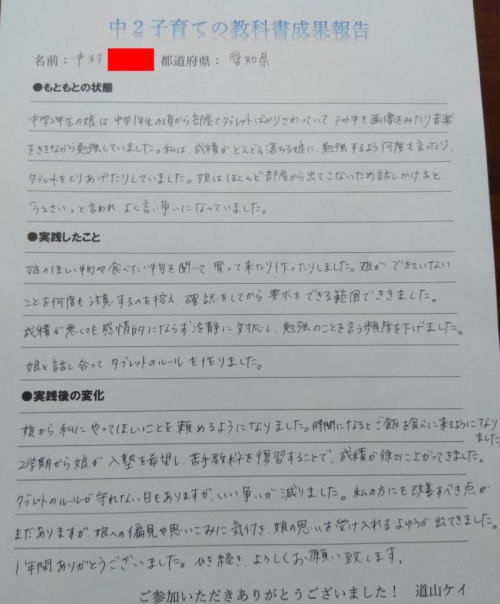 中２子育ての教科書成果報告
名前：中村 都道府県：愛知県
●もともとの状態
中学2年生の娘は、中学1年生の頃から部屋でタブレットばかりさわっていて、テスト中も画像をみたり音楽
をききながら勉強していました。私は、成績がどんどん落ちる娘に、勉強するよう何度も言ったり、
タブレットをとりあげたりしていました。娘はほとんど部屋から出てこないため話しかけると、
「うるさい」と言われ、よく言い争いになっていました。
●実践したこと
娘のほしい物や食べたい物を聞いて、買って来たり作ったりしました。娘ができていない
ことを何度も注意するのを控え、確認をしてから要求をできる範囲でききました。
成績が悪くても感情的にならず冷静に対応し、勉強のことを言う頻度を下げました。
娘と話し合ってタブレットのルールを作りました。
●実践後の変化
娘から私にやってほしいことを頼めるようになりました。時間になるとご飯を食べに来るようになり
ました
2学期から娘が入塾を希望し、苦手教科を復習することで、成績が徐々に上がってきました。
タブレットのルールが守れない日もありますが、いい争いが減りました。私の方にも改善すべき点が
まだありますが、娘への偏見や思いこみに気付き、娘の思いを受け入れるよゆうが出てきました。
1年間ありがとうございました。ひき続き、よろしくお願い致します。
ご参加いただきありがとうございました！　道山ケイ